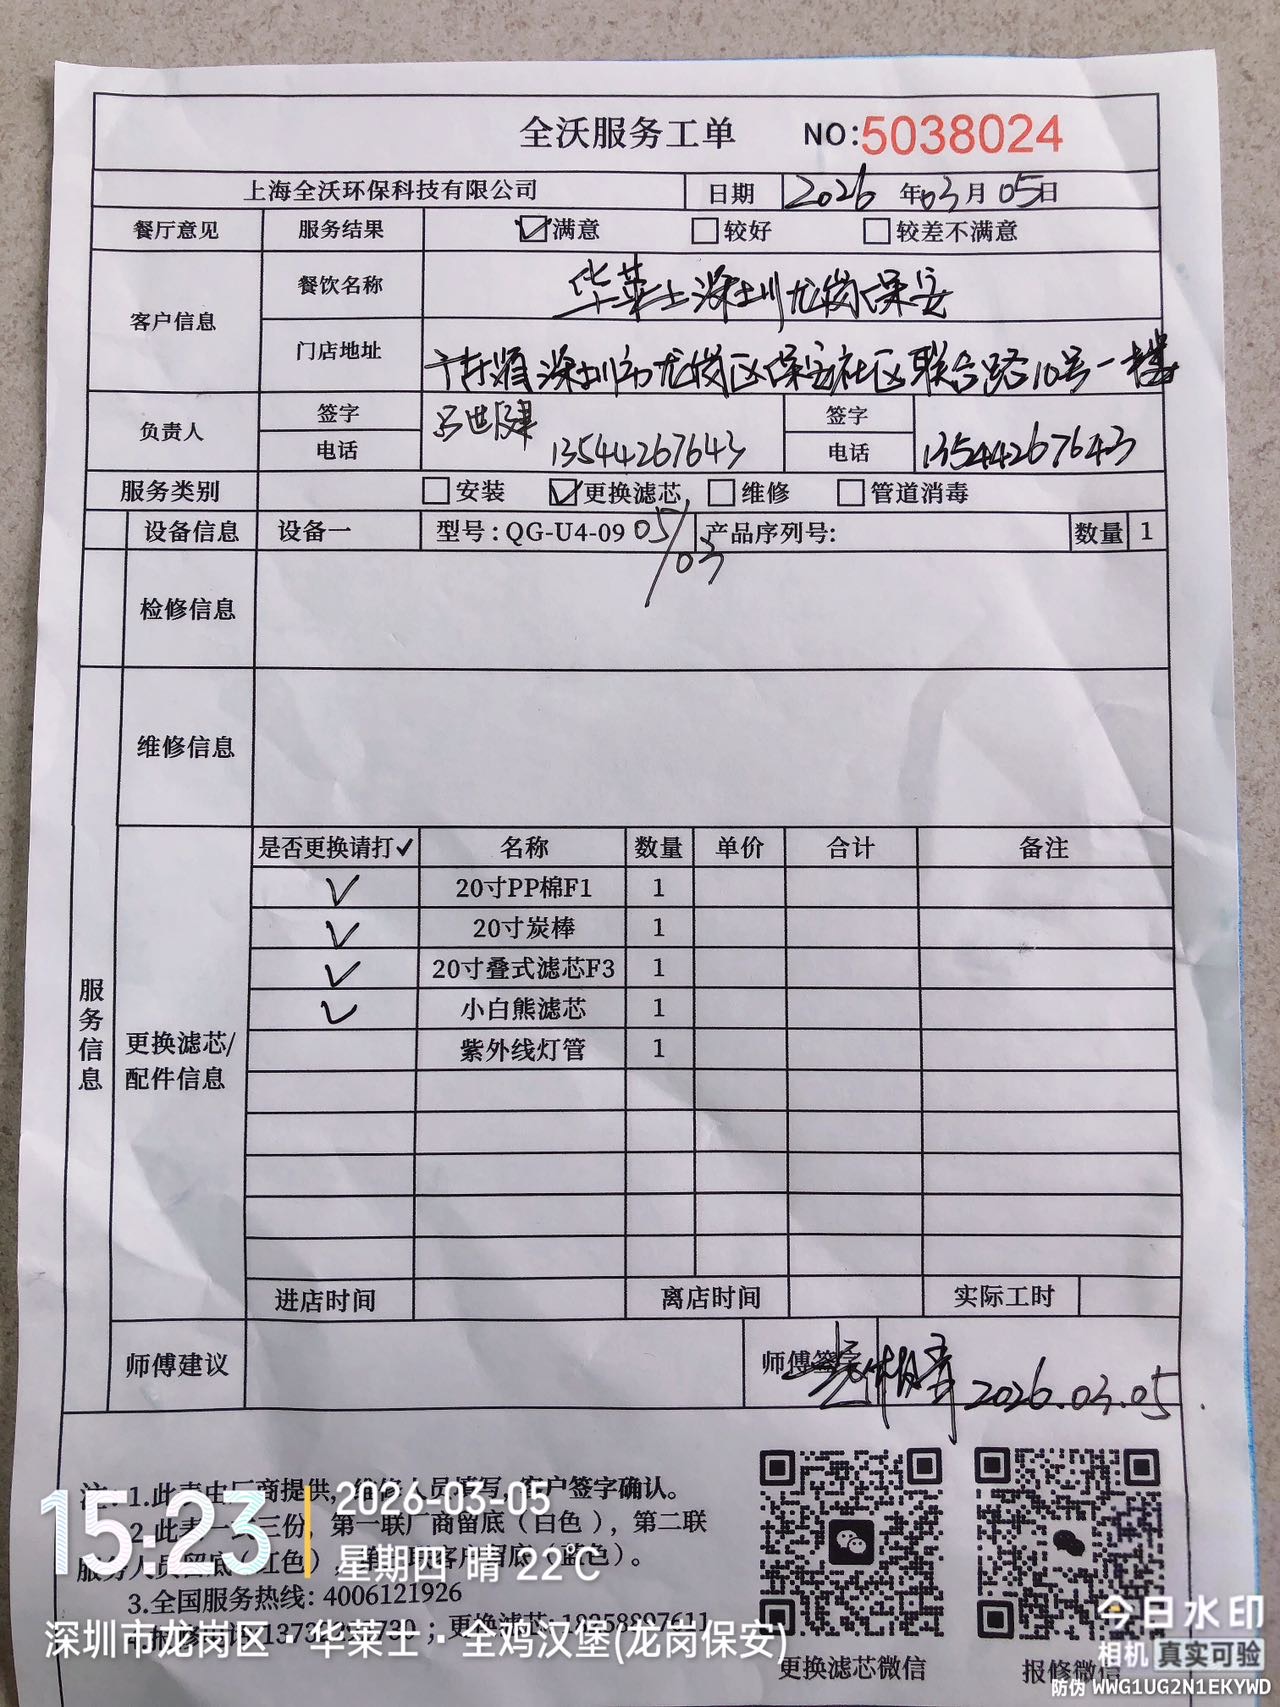 全沃服务工单 NO:5038024
上海全沃环保科技有限公司 日期 2026年03月05日
餐厅意见 服务结果 ☑满意 □较好 □较差不满意
客户信息 餐饮名称 华莱士深圳龙岗保安
门店地址 广东省深圳市龙岗区保安社区联合路10号一楼
负责人 签字 签字
电话 13544267643 电话 13544267643
服务类别 □安装 ☑更换滤芯, □维修 □管道消毒
设备信息 设备一 型号:QG-U4-09 05/03 产品序列号: 数量 1
检修信息
维修信息
服务信息
更换滤芯/配件信息
是否更换请打✓ 名称 数量 单价 合计 备注
✓ 20寸PP棉F1 1
✓ 20寸炭棒 1
✓ 20寸叠式滤芯F3 1
✓ 小白熊滤芯 1
紫外线灯管 1
进店时间 离店时间 实际工时
师傅建议 师傅签字 2026.03.05.
注:1.此表由厂商提供,维修人员填写,客户签字确认。
2.此表一式三份,第一联厂商留底(白色),第二联
服务人员留底(红色),第三联客户留底(蓝色)。
3.全国服务热线:4006121926
更换滤芯:18258897611
更换滤芯微信 报修微信
15:23 2026-03-05
星期四 晴 22℃
深圳市龙岗区·华莱士·全鸡汉堡(龙岗保安)
今日水印
相机 真实可验
防伪 WWG1UG2N1EKYWD